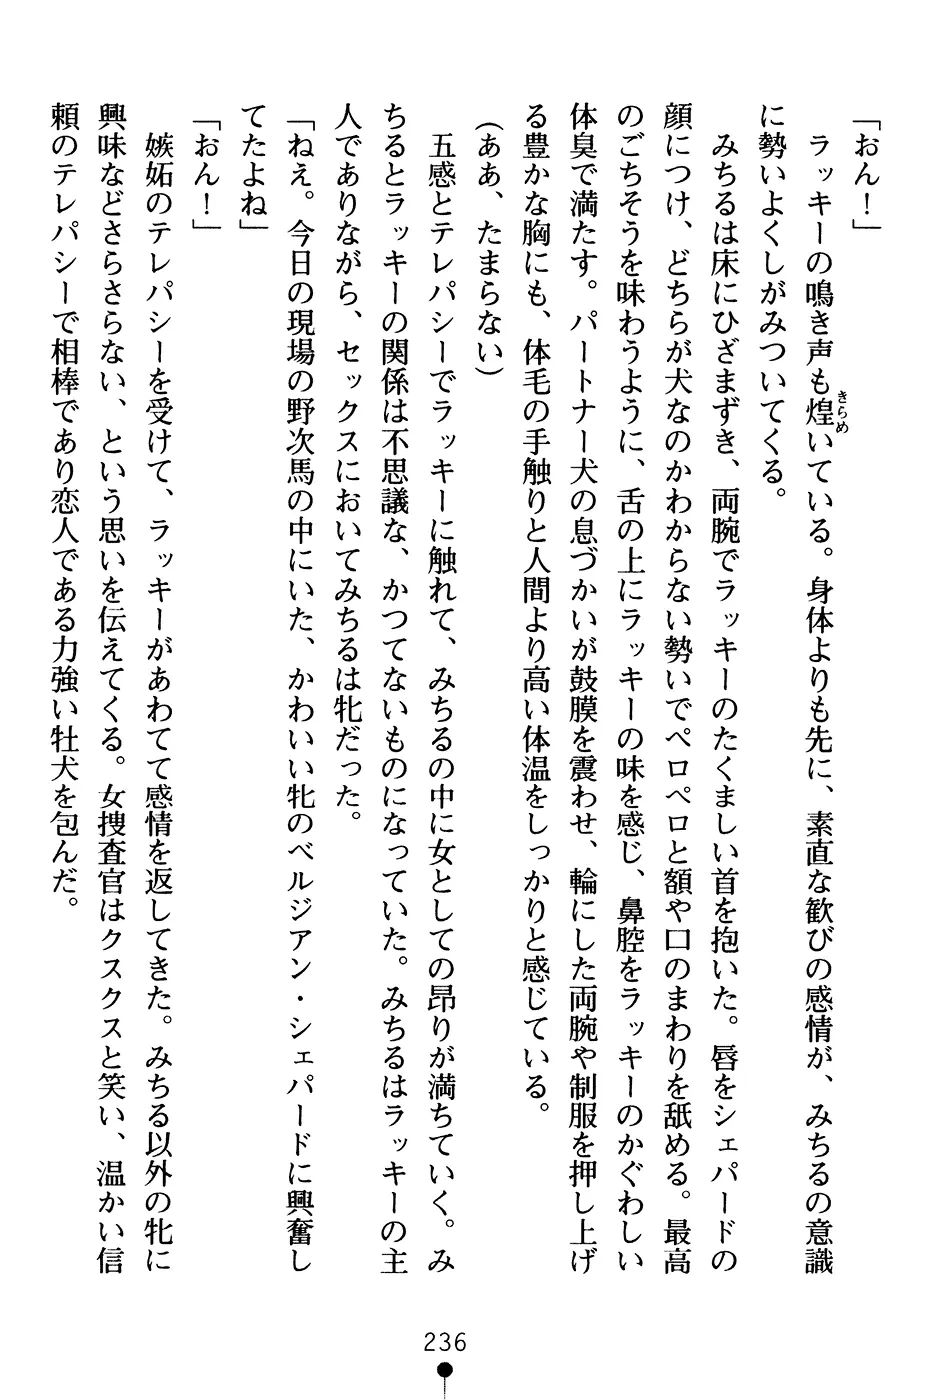 「おん！」
　ラッキーの鳴き声も煌いている。身体よりも先に、素直な歓びの感情が、みちるの意識
きらめ
に勢いよくしがみついてくる。
　みちるは床にひざまずき、両腕でラッキーのたくましい首を抱いた。唇をシェパードの
顔につけ、どちらが犬なのかわからない勢いでペロペロと額や口のまわりを舐める。最高
のごちそうを味わうように、舌の上にラッキーの味を感じ、鼻腔をラッキーのかぐわしい
体臭で満たす。パートナー犬の息づかいが鼓膜を震わせ、輪にした両腕や制服を押し上げ
る豊かな胸にも、体毛の手触りと人間より高い体温をしっかりと感じている。
（ああ、たまらない）
　五感とテレパシーでラッキーに触れて、みちるの中に女としての昂りが満ちていく。み
ちるとラッキーの関係は不思議な、かつてないものになっていた。みちるはラッキーの主
人でありながら、セックスにおいてみちるは牝だった。
「ねえ。今日の現場の野次馬の中にいた、かわいい牝のベルジアン・シェパードに興奮し
てたよね」
「おん！」
　嫉妬のテレパシーを受けて、ラッキーがあわてて感情を返してきた。みちる以外の牝に
興味などさらさらない、という思いを伝えてくる。女捜査官はクスクスと笑い、温かい信
頼のテレパシーで相棒であり恋人である力強い牡犬を包んだ。
236